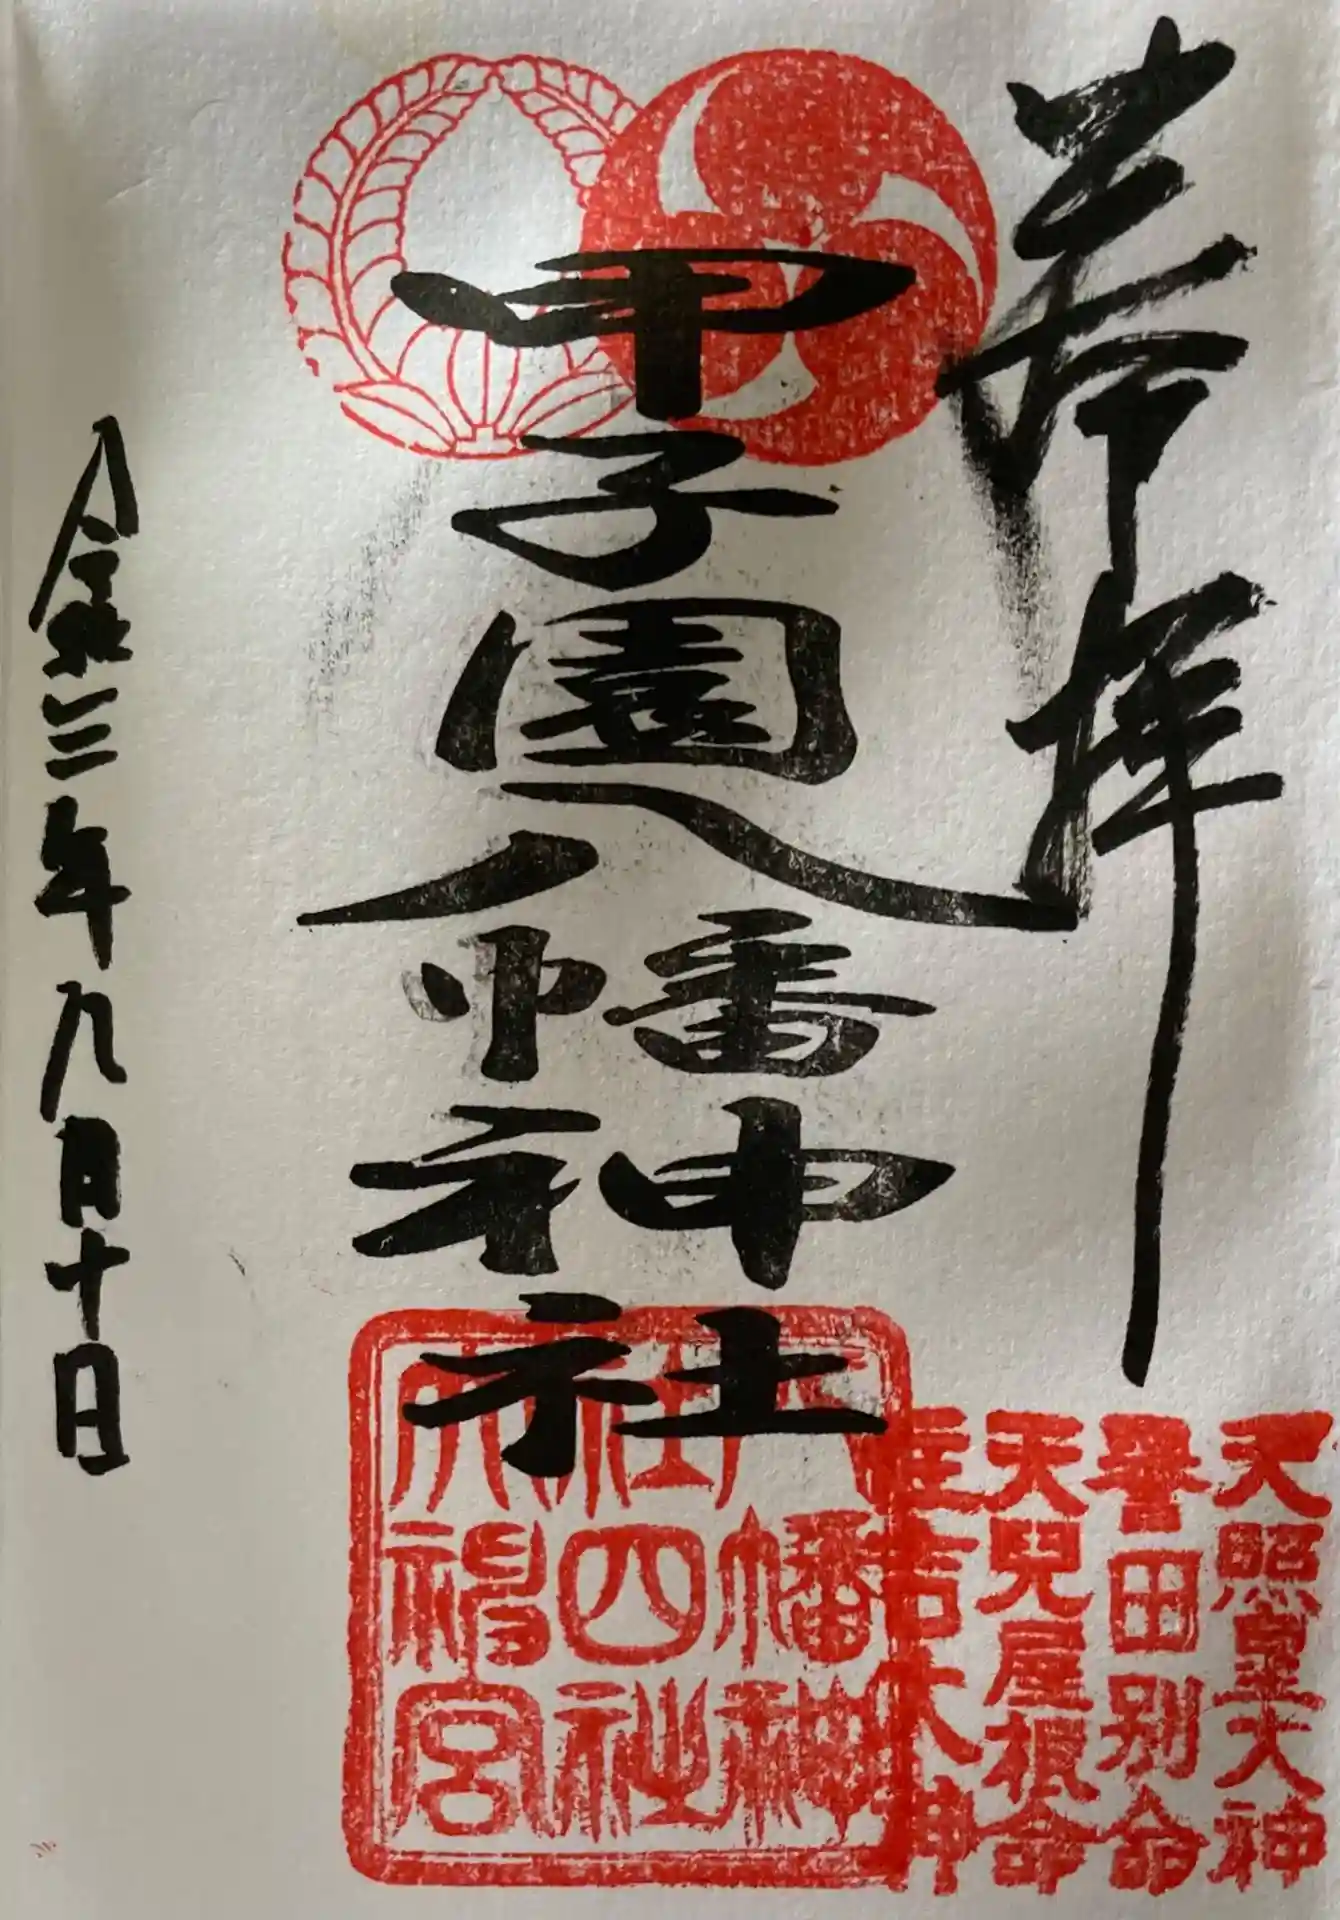 奉拝
天照皇大神
誉田別命
天兒屋根命
住吉大神
甲子園八幡神社
八幡神
社四社
大神宮
令和三年九月十日